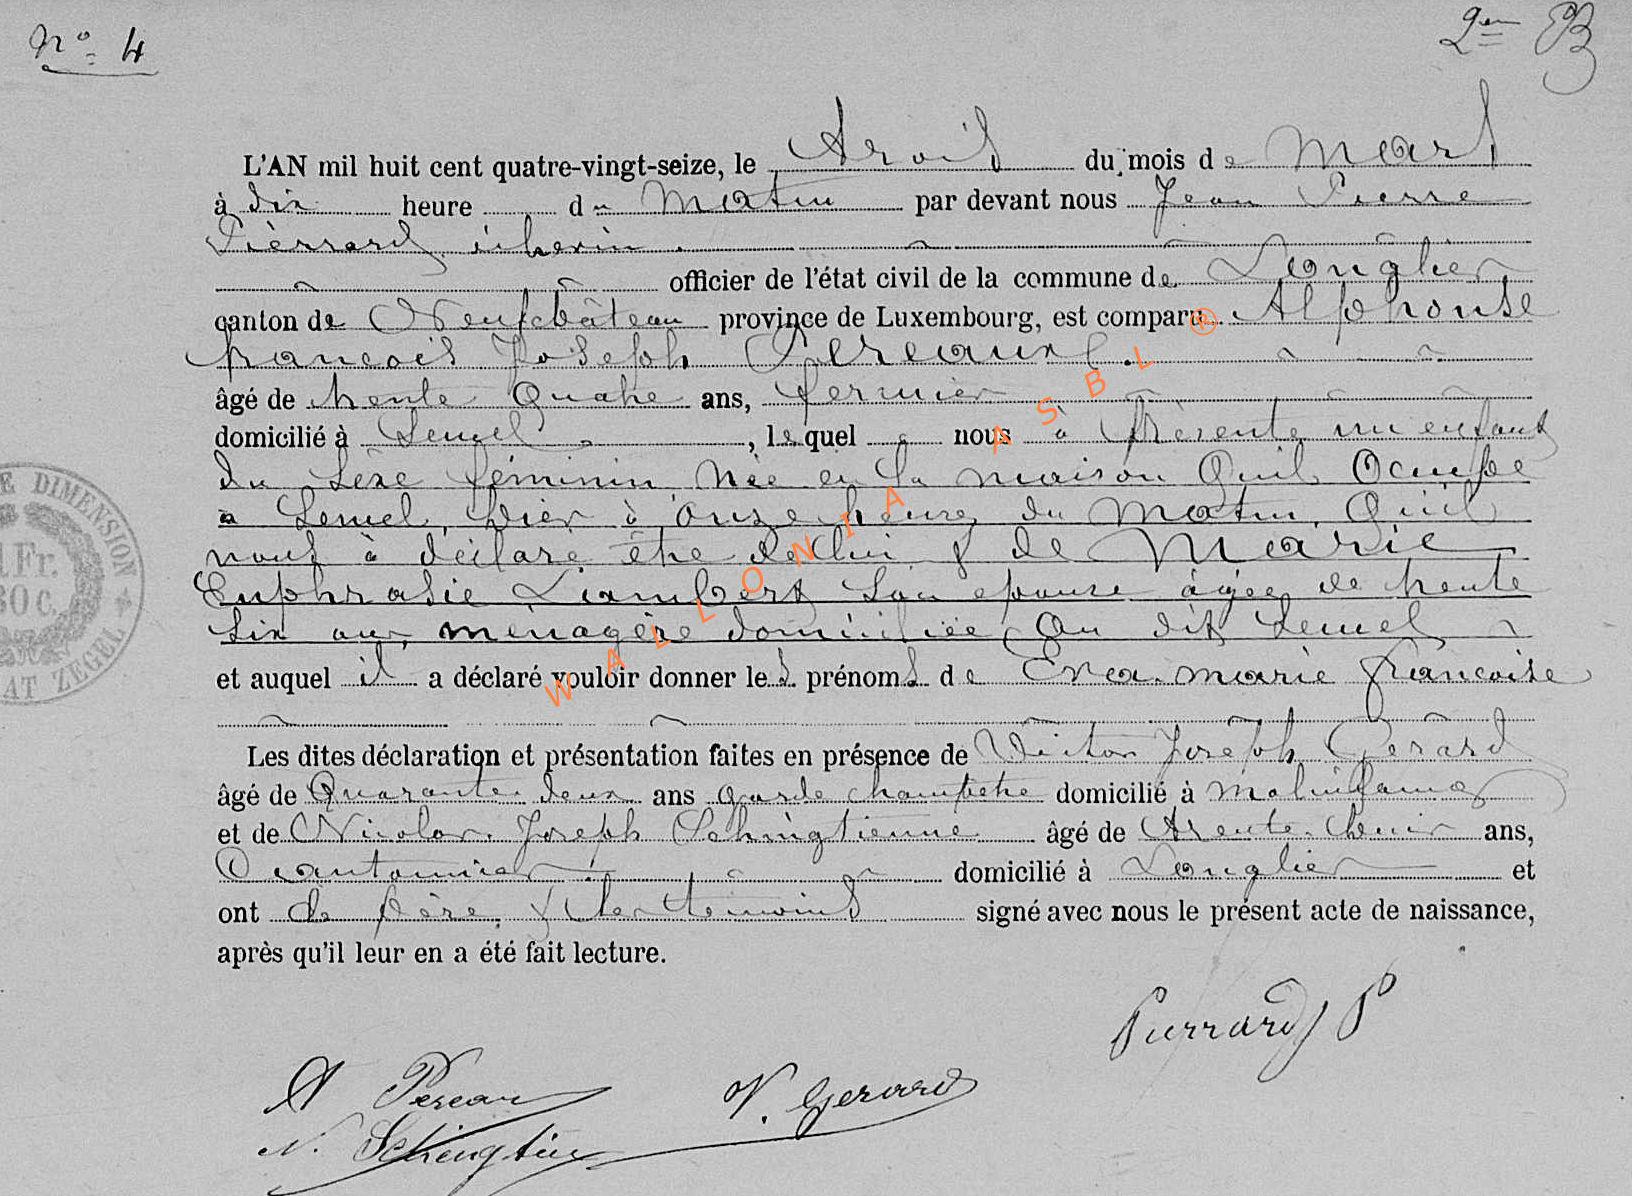 N° 4
2en B
L'AN mil huit cent quatre-vingt-seize, le trois du mois de Mars
à dix heure du Matin par devant nous Jean Pierre
Pièrrard échevin
officier de l'état civil de la commune de Longlier
canton de Neufchâteau province de Luxembourg, est comparu Alphonse
françois Joseph Pereaux
âgé de trente Quatre ans, fermier
domicilié à Semel, lequel nous à présenté un enfant
du sèxe féminin Née en la maison Quil Occupe
a Semel, hier à onze heures du Matin, Quil
nous à déclaré être de lui & de Marie
Euphrasie Lambert son epouse âgée de trente
six ans ménagère domiciliée Au dit Semel
et auquel il a déclaré vouloir donner les prénoms de Erea marie françoise
Les dites déclaration et présentation faites en présence de Victor Joseph Gerard
âgé de Quarante deux ans garde champêtre domicilié à
et de Nicolas Joseph Schingtienne âgé de trente ans,
Cantonnier domicilié à Longlier et
ont le père & les témoins signé avec nous le présent acte de naissance,
après qu'il leur en a été fait lecture.
Pierrard J P
A Pereau
V. Gerard
N. Schingtien
E DIMENSION
1 Fr.
30 C.
AT ZEGEL
WALLONIA ASBL ®